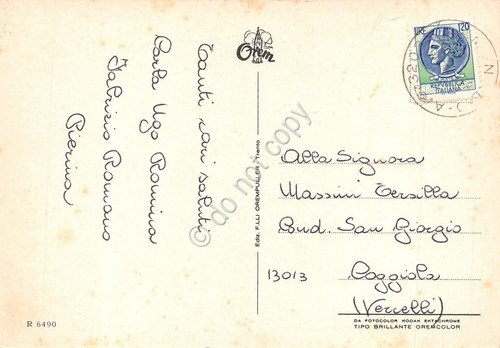 Tanti cari saluti
Carla Ugo Romina
Fabrizio Romano
Pierina
R 6490
Orem
Ediz. F.LLI OREMPULLER - Trento
do not copy
LIRE 120
Alla Signora
Massimi Tersilla
Cond. San Giorgio
13013 Coggiola
(Vercelli)
DA FOTOCOLOR KODAK EKTACHROME
TIPO BRILLANTE OREMCOLOR